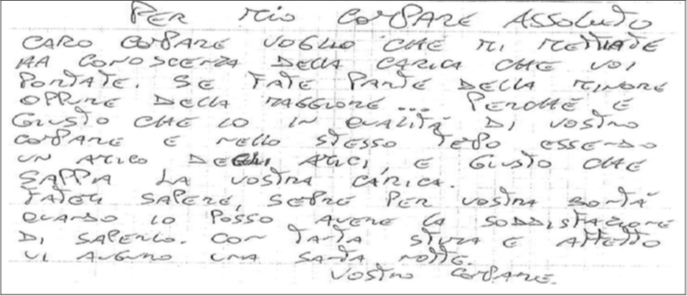 PER MIO COMPARE ASSOLUTO
CARO COMPARE VOGLIO CHE MI METTIATE
AA CONOSCENZA DELLA CARICA CHE VOI
PORTATE. SE FATE PARTE DELLA MINORE
OPPURE DELLA MAGGIORE... PERCHÉ E
GIUSTO CHE IO IN QUALITÀ DI VOSTRO
COMPARE E NELLO STESSO TEPO ESSENDO
UN AMICO DEGLI AMICI, E GIUSTO CHE
SAPPIA LA VOSTRA CÀRICA.
FATEMI SAPERE, SEPRE PER VOSTRA BONTÀ
QUANDO IO POSSO AVERE LA SODDISFAZIONE
DI SAPERLO. CON TANTA STIMA E AFFETTO
VI AUGURO UNA SANTA NOTTE.
VOSTRO COMPARE.